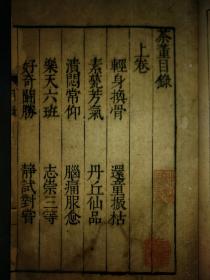 茶董目錄
上卷
輕身換骨　還童振枯
素甆芳氣　丹丘仙品
潰悶常仰　腦痛服愈
樂天六班　志崇三等
好奇鬭勝　靜試對嘗